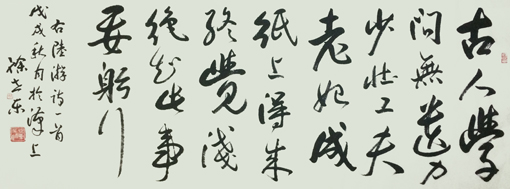 古人學
問無遺力
少壮工夫
老始成
紙上得来
終覺淺
絶知此事
要躬行
右陸游詩一首
戊戌秋月於漢上
徐